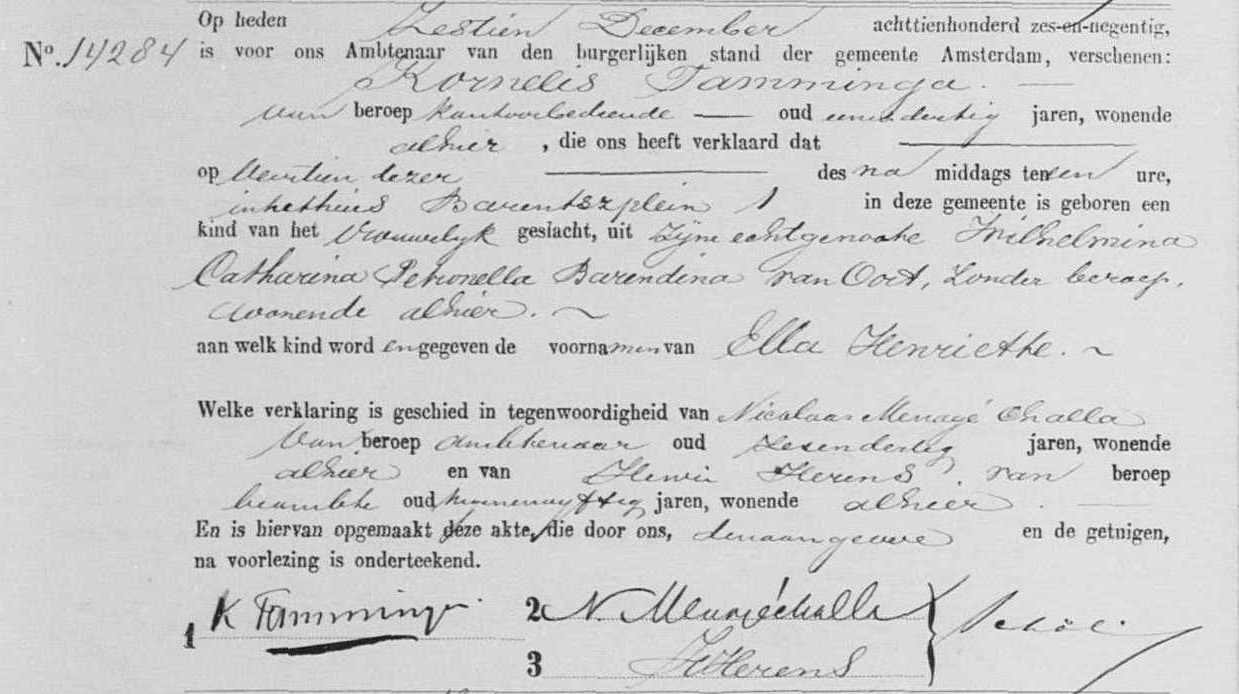 Op heden Zestien December achttienhonderd zes-en-negentig,
No. 14284 is voor ons Ambtenaar van den burgerlijken stand der gemeente Amsterdam, verschenen:
Kornelis Tamminga.
van beroep kantoorbediende — oud eenendertig jaren, wonende
alhier, die ons heeft verklaard dat
op veertien dezer des na middags ten een ure,
in het huis Barentszplein 1 in deze gemeente is geboren een
kind van het vrouwelijk geslacht, uit zijne echtgenoote Wilhelmina
Catharina Petronella Barendina van Oort, zonder beroep,
wonende alhier.
aan welk kind worden gegeven de voornamen van Ella Henriette.
Welke verklaring is geschied in tegenwoordigheid van Nicolaas Menagé Challa
van beroep ambtenaar oud zesendertig jaren, wonende
alhier en van Henri Herens, van beroep
beambte oud negenenvyftig jaren, wonende alhier.
En is hiervan opgemaakt deze akte, die door ons, den aangever en de getuigen,
na voorlezing is onderteekend.
1 K Tamminga
2 N. Menagé Challa
3 HHerens